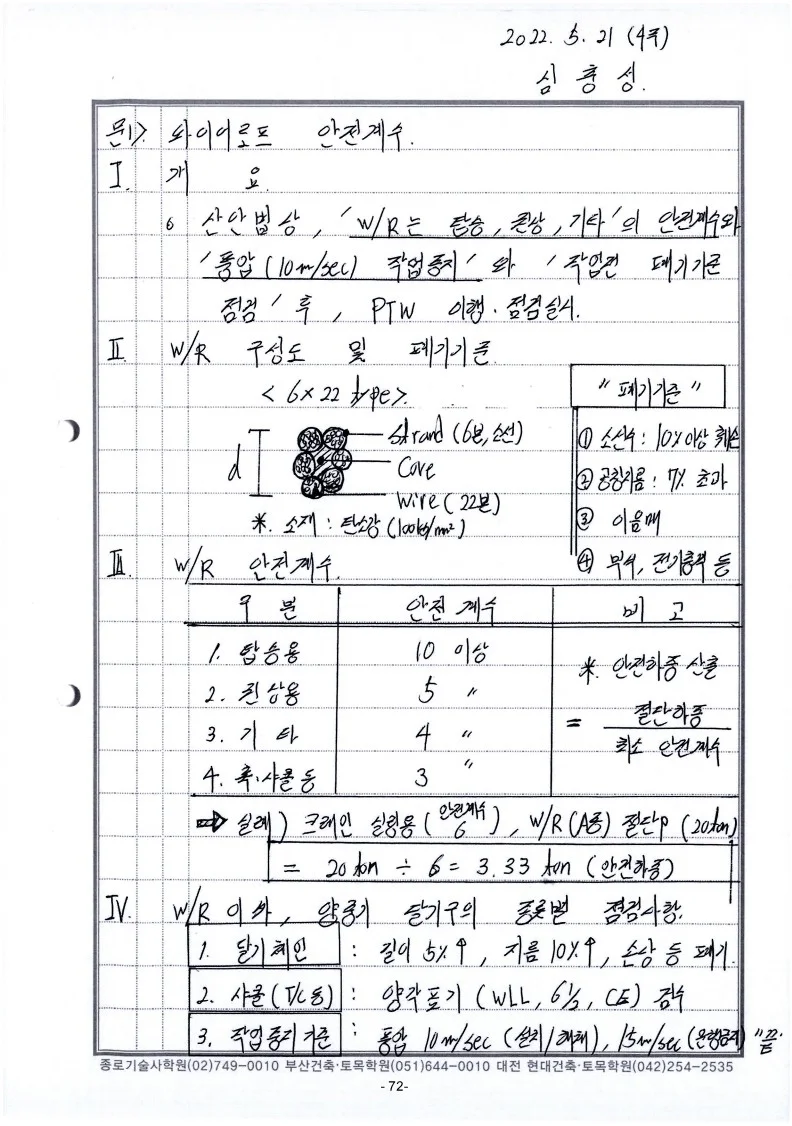 2022. 5. 21 (4주)
심 흥 성.
문1> 와이어로프 안전계수.
I. 개 요
산안법상, 'W/R는 탑승, 권상, 기타'의 안전계수와
'풍압 (10m/sec) 작업중지' 와 '작업전 폐기기준
점검' 후, PTW 이행·점검실시.
II. W/R 구성도 및 폐기기준
< 6×22 type >
d
Strand (6본, 소선)
Core
Wire (22본)
*. 소재 : 탄소강 (100kg/mm²)
" 폐기기준 "
① 소선수 : 10% 이상 훼손
② 공칭지름 : 7% 초과
③ 이음매
④ 부식, 전기충격 등
III. W/R 안전계수.
구 분 안전계수 비 고
1. 탑승용 10 이상
2. 권상용 5 〃
3. 기 타 4 〃
4. 훅·샤클 등 3 〃
*. 안전하중 산출
= 절단하중
최소 안전계수
⇒ 실례) 크레인 실링용 (안전계수 6), W/R (A종) 절단P (20ton)
= 20 ton ÷ 6 = 3.33 ton (안전하중)
IV. W/R 이외, 양중기 달기구의 종류별 점검사항.
1. 달기체인 : 길이 5%↑, 지름 10%↑, 손상 등 폐기.
2. 샤클 (T/C용) : 양각표기 (WLL, 6½, CE) 검수
3. 작업중지기준 : 풍압 10m/sec (설치/해체), 15m/sec (운행금지) "끝.
종로기술사학원(02)749-0010 부산건축·토목학원(051)644-0010 대전 현대건축·토목학원(042)254-2535
- 72-